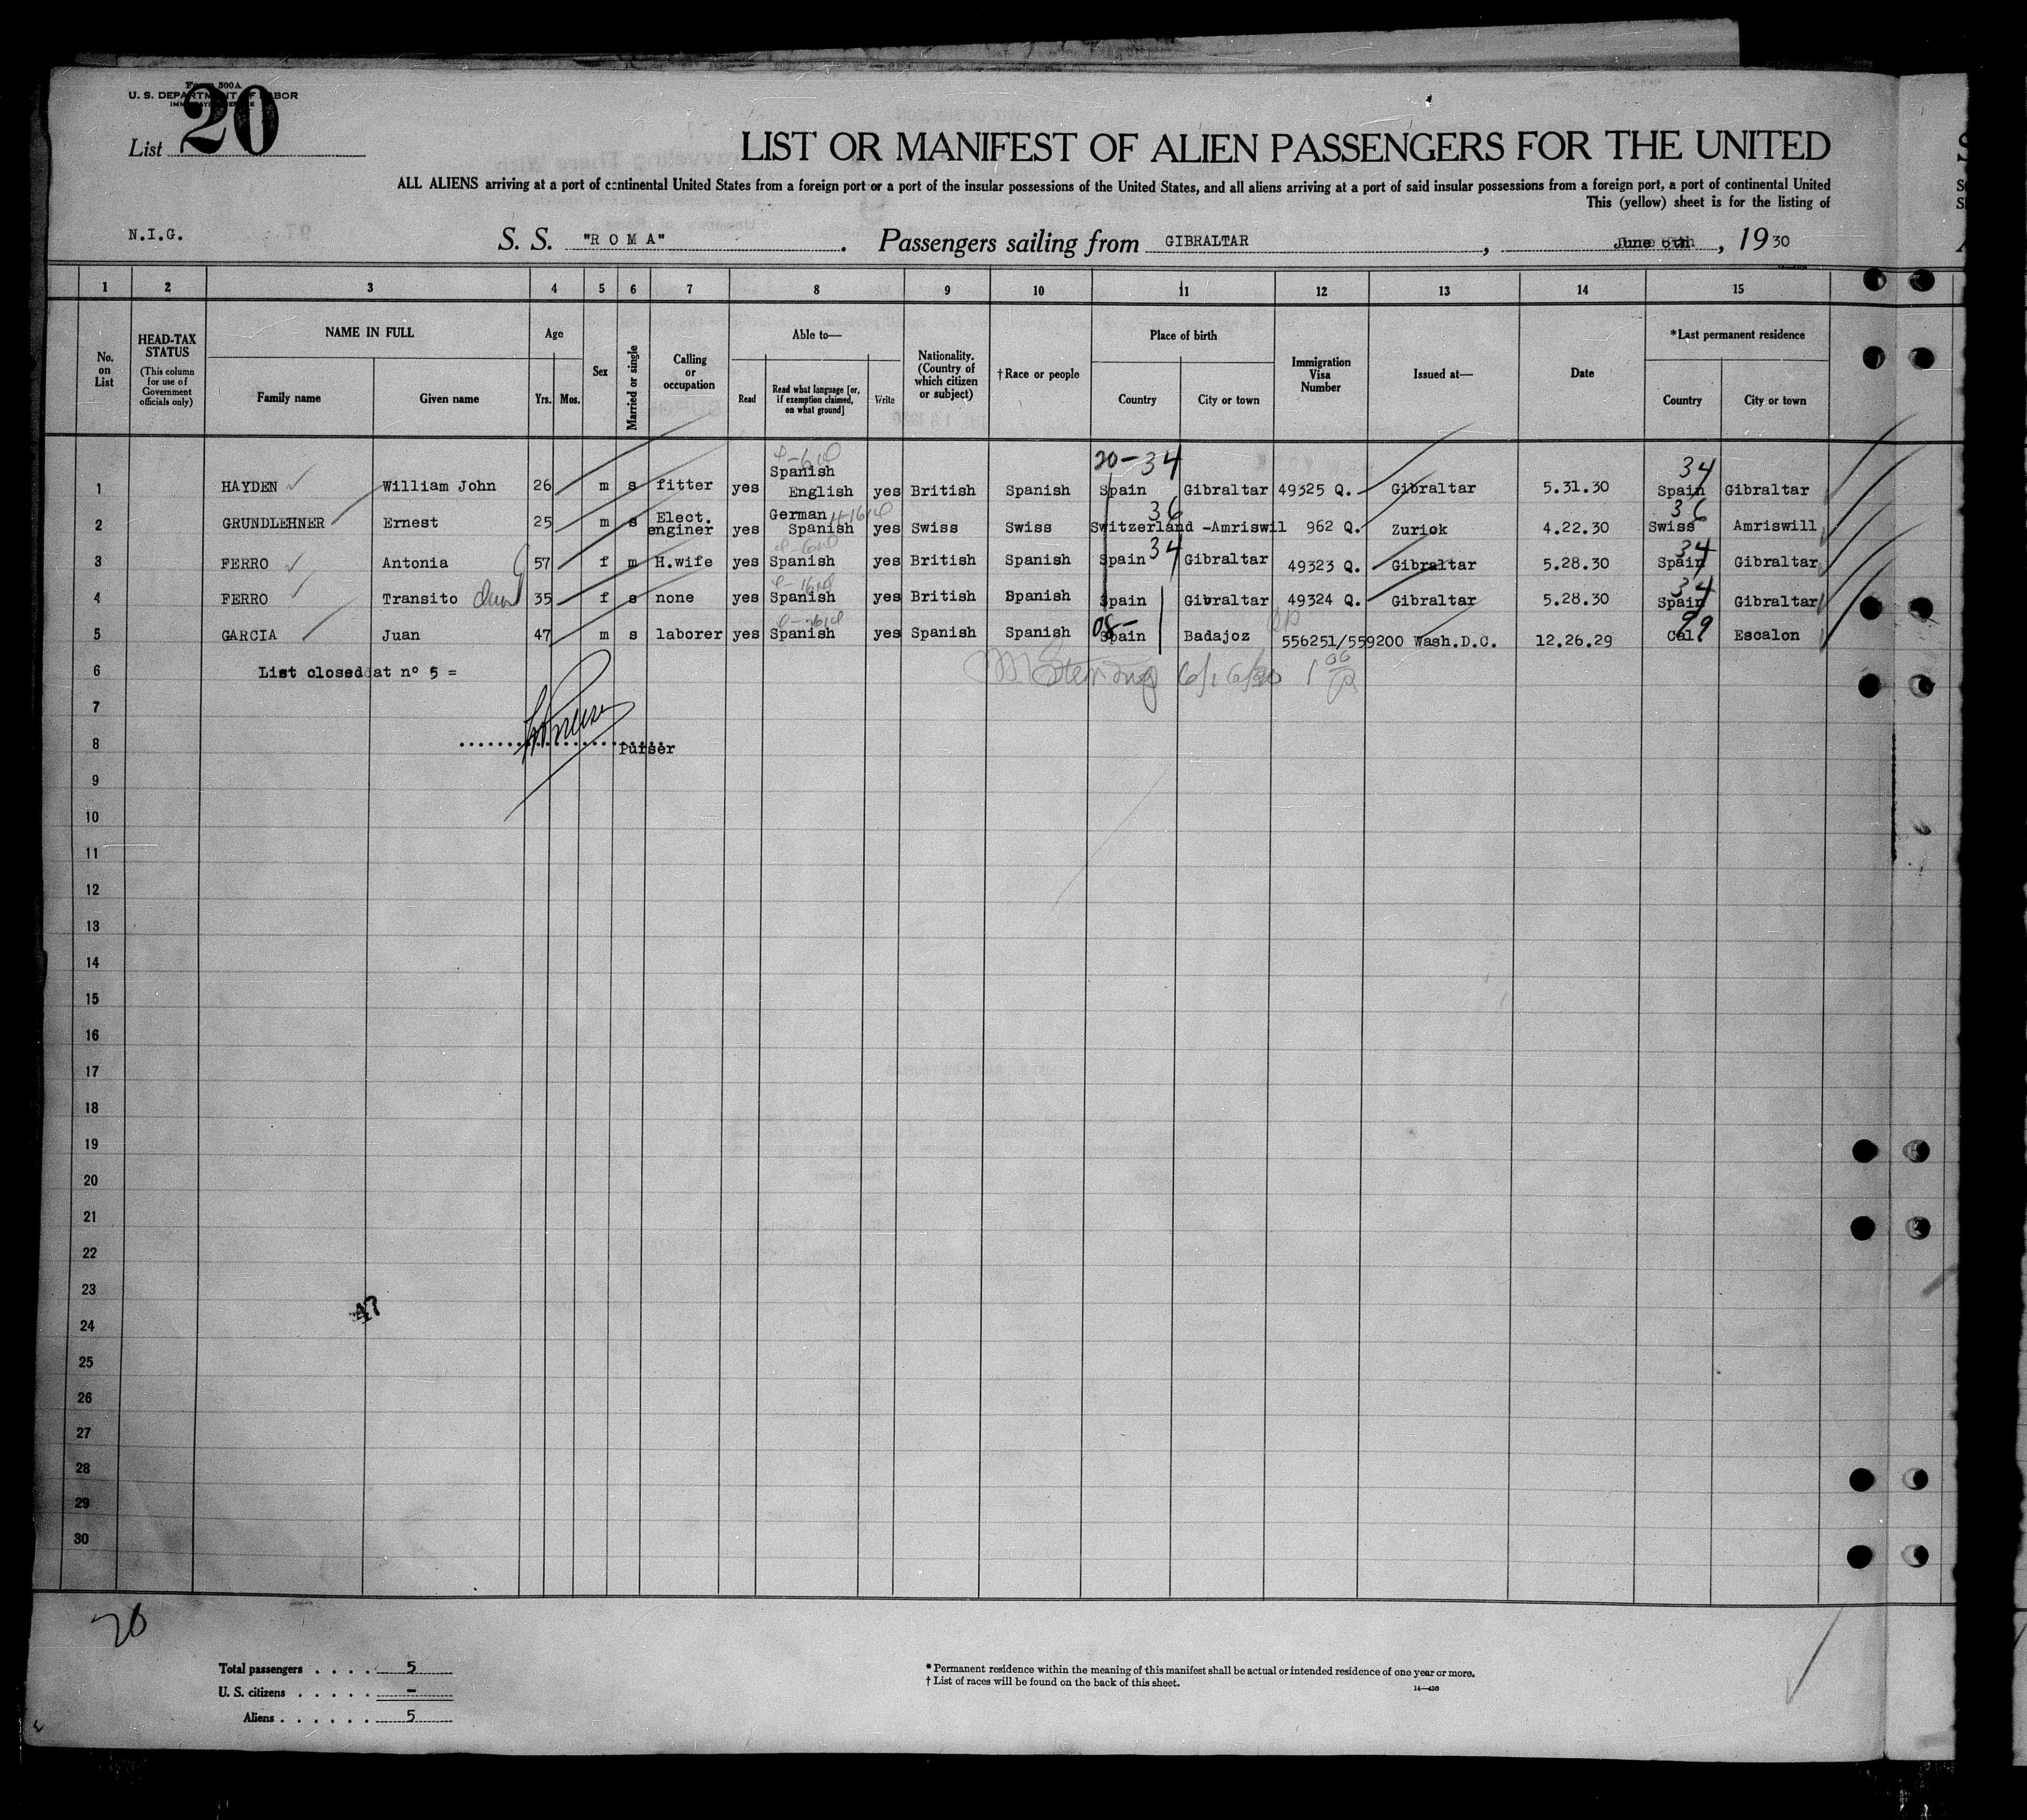 Form 500A
U. S. DEPARTMENT OF LABOR
IMMIGRATION SERVICE
List 20
LIST OR MANIFEST OF ALIEN PASSENGERS FOR THE UNITED
ALL ALIENS arriving at a port of continental United States from a foreign port or a port of the insular possessions of the United States, and all aliens arriving at a port of said insular possessions from a foreign port, a port of continental United
This (yellow) sheet is for the listing of
N.I.G. S. S. "R O M A" . Passengers sailing from GIBRALTAR , June 6th , 1930
1 2 3 4 5 6 7 8 9 10 11 12 13 14 15
No. on List
HEAD-TAX STATUS
(This column for use of Government officials only)
NAME IN FULL
Family name Given name
Age
Yrs. Mos.
Sex
Married or single
Calling or occupation
Able to—
Read Read what language [or, if exemption claimed, on what ground] Write
Nationality. (Country of which citizen or subject)
†Race or people
Place of birth
Country City or town
Immigration Visa Number
Issued at—
Date
*Last permanent residence
Country City or town
20-34 34
1 HAYDEN William John 26 m s fitter yes Spanish English yes British Spanish Spain Gibraltar 49325 Q. Gibraltar 5.31.30 Spain Gibraltar
36 36
2 GRUNDLEHNER Ernest 25 m s Elect. enginer yes German Spanish yes Swiss Swiss Switzerland -Amriswil 962 Q. Zurick 4.22.30 Swiss Amriswill
34 34
3 FERRO Antonia 57 f m H.wife yes Spanish yes British Spanish Spain Gibraltar 49323 Q. Gibraltar 5.28.30 Spain Gibraltar
34
4 FERRO Transito 35 f s none yes Spanish yes British Spanish Spain Gibraltar 49324 Q. Gibraltar 5.28.30 Spain Gibraltar
08- 99
5 GARCIA Juan 47 m s laborer yes Spanish yes Spanish Spanish Spain Badajoz 556251/559200 Wash.D.C. 12.26.29 Cal Escalon
6 List closed at nº 5 = 6/16/30
7
8 Purser
9
10
11
12
13
14
15
16
17
18
19
20
21
22
23
47
24
25
26
27
28
29
30
20
Total passengers . . . . 5
U. S. citizens . . . . . -
Aliens . . . . . . 5
* Permanent residence within the meaning of this manifest shall be actual or intended residence of one year or more.
† List of races will be found on the back of this sheet.
14—430